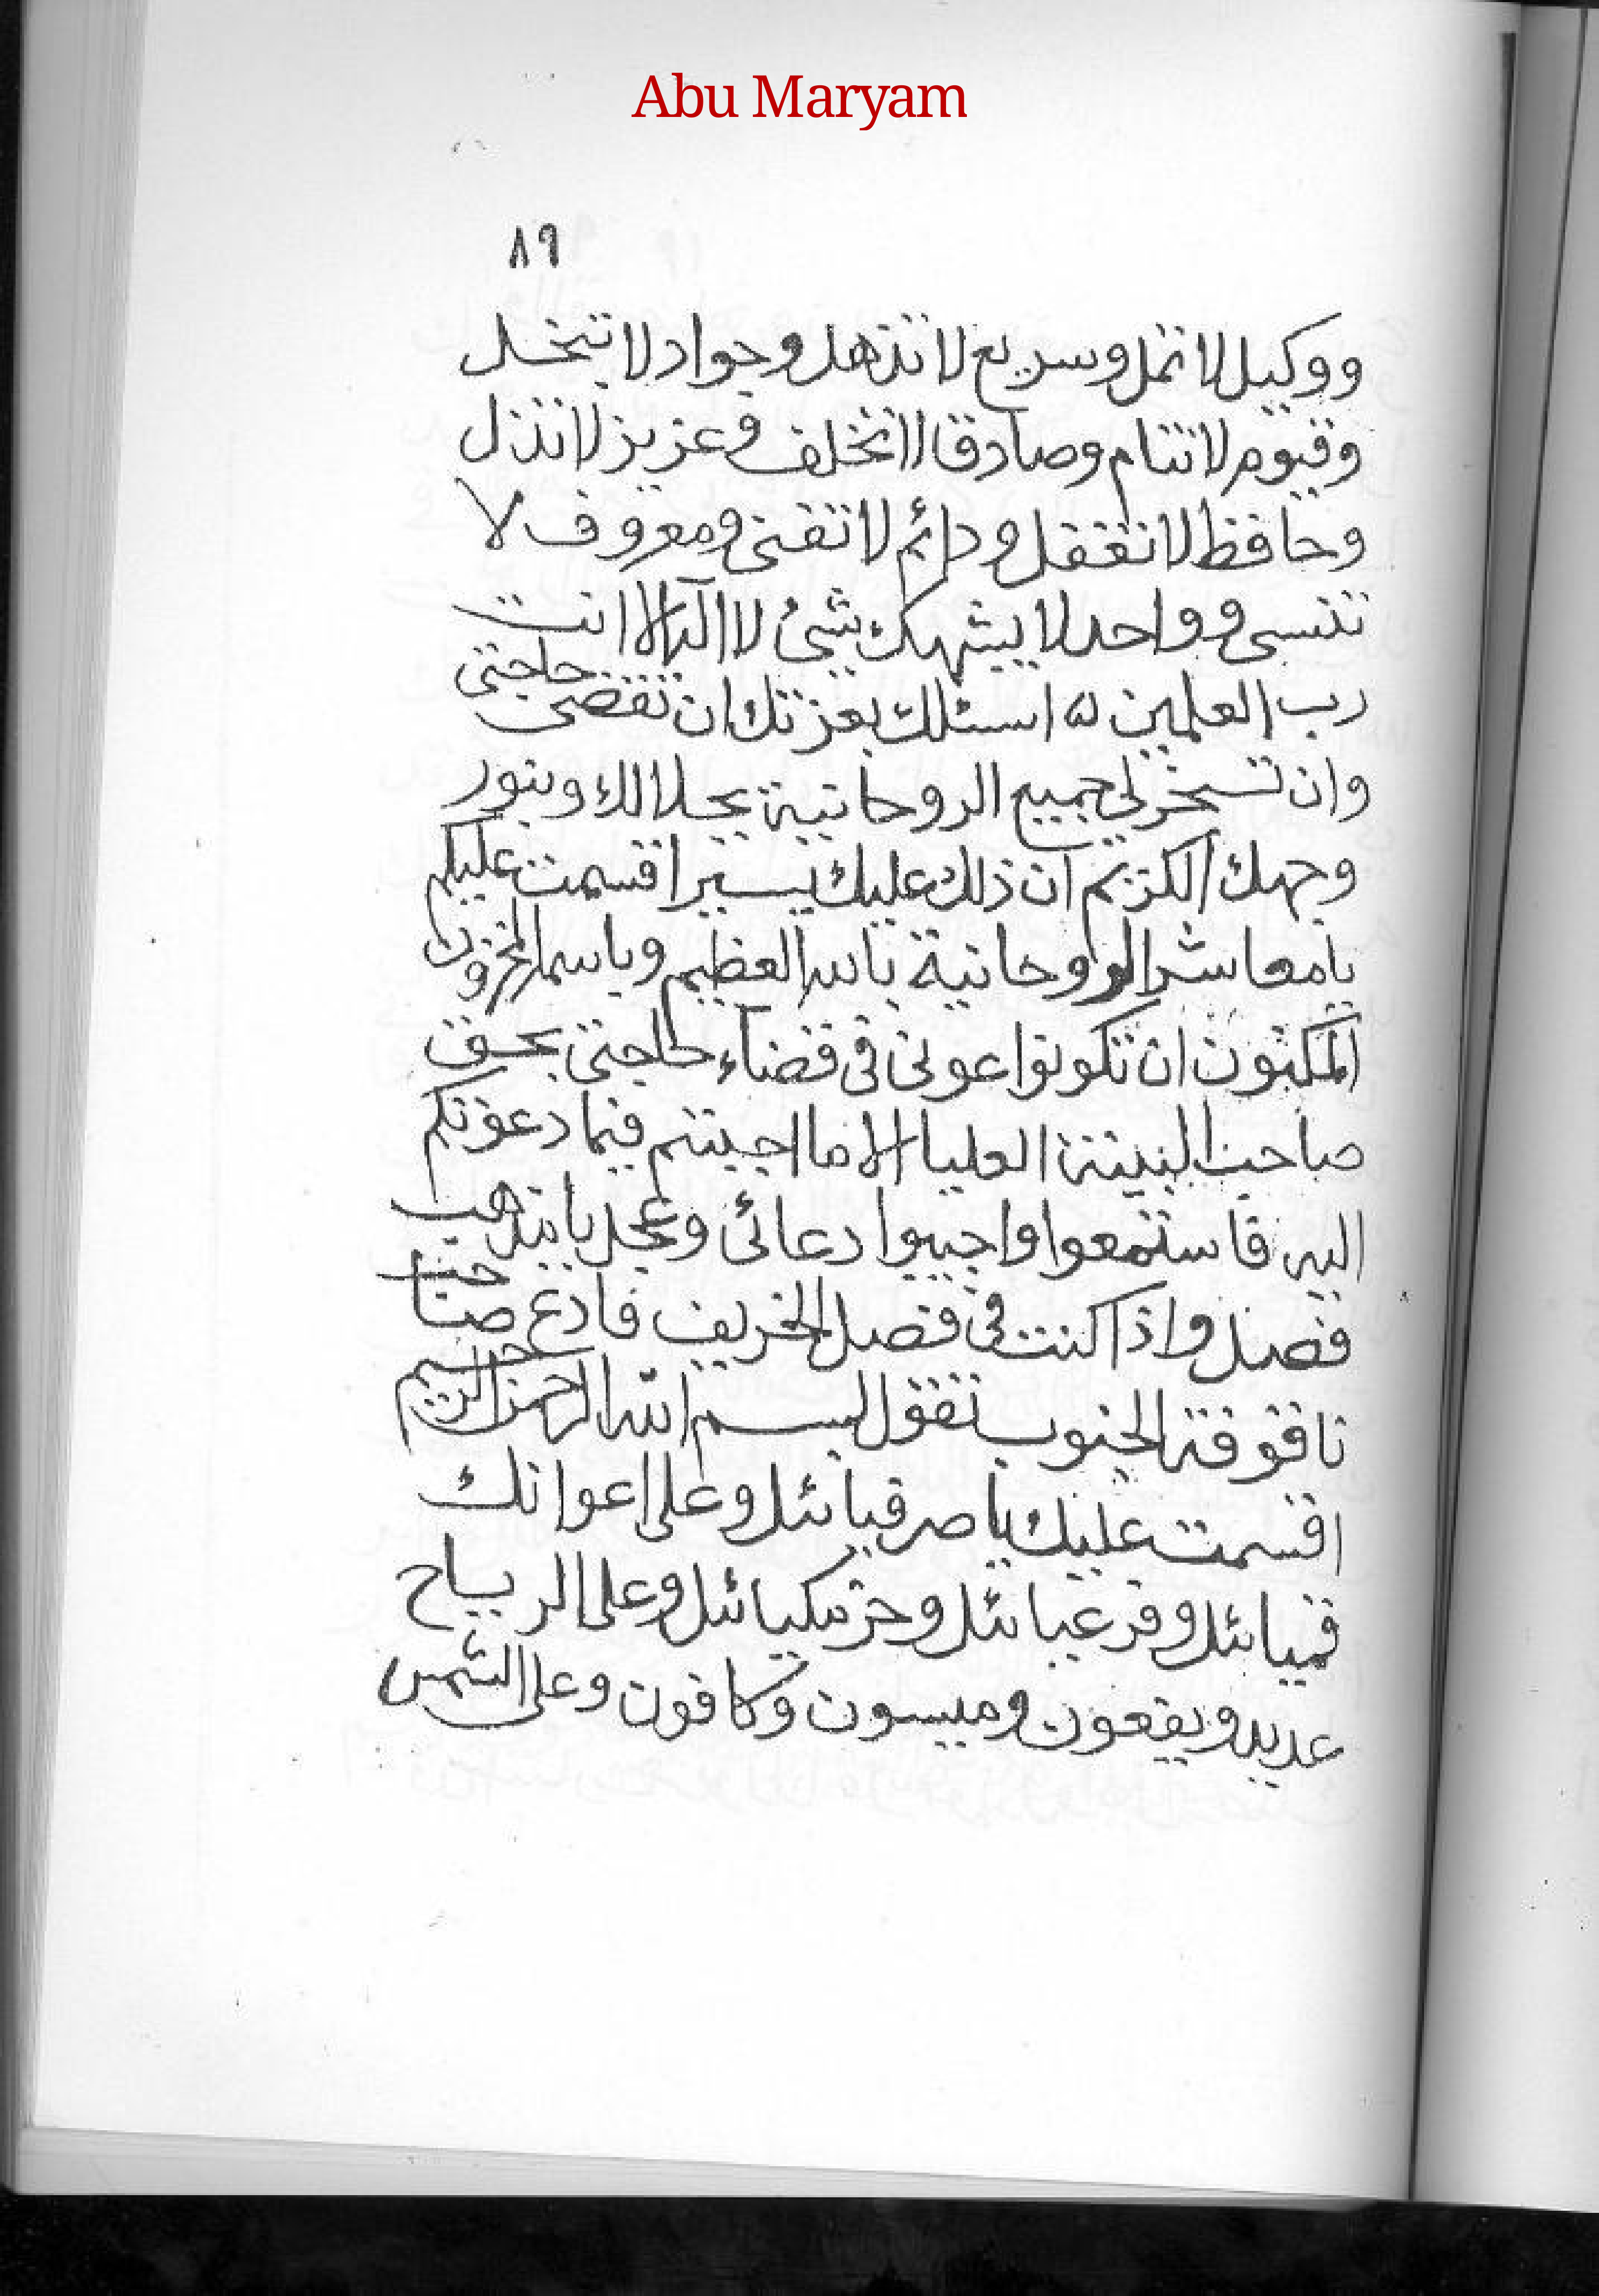 Abu Maryam
٨٩
ووكيل لا تمل وسريع لا تذهل وجواد لا تبخل
وقيوم لا تنام وصادقا لا تخلف وعزيز لا تذل
وحافظ لا تغفل ودائم لا تفنى ومعروف لا
تنسى وواحد لا يشبهك شيئ لا اله الا انت
رب العلمين ه اسئلك بعزتك ان تقضى حاجتى
وان تسخر لى جميع الروحانية بجلالك وبنور
وجهك الكريم ان ذلك عليك يسير اقسمت عليكم
يا معاشر الروحانية باسم العظيم وباسم المخزون
المكنون ان تكونوا عونى فى قضاء حاجتى بحق
صاحب البنية العليا الا ما اجبتم فيما دعوتكم
اليه فاستمعوا واجيبوا دعائى وعجل يا مذهب
فصل واذا كنت فى فصل الخريف فادع صاحب
ناقوفة الجنوب تقول بسم الله الرحمن الرحيم
اقسمت عليك يا صرفيائل وعلى اعوانك
قميائل وفرغيائل وحزمكيائل وعلى الرياح
عديد ويقعون وميسون وكافون وعلى الشمس